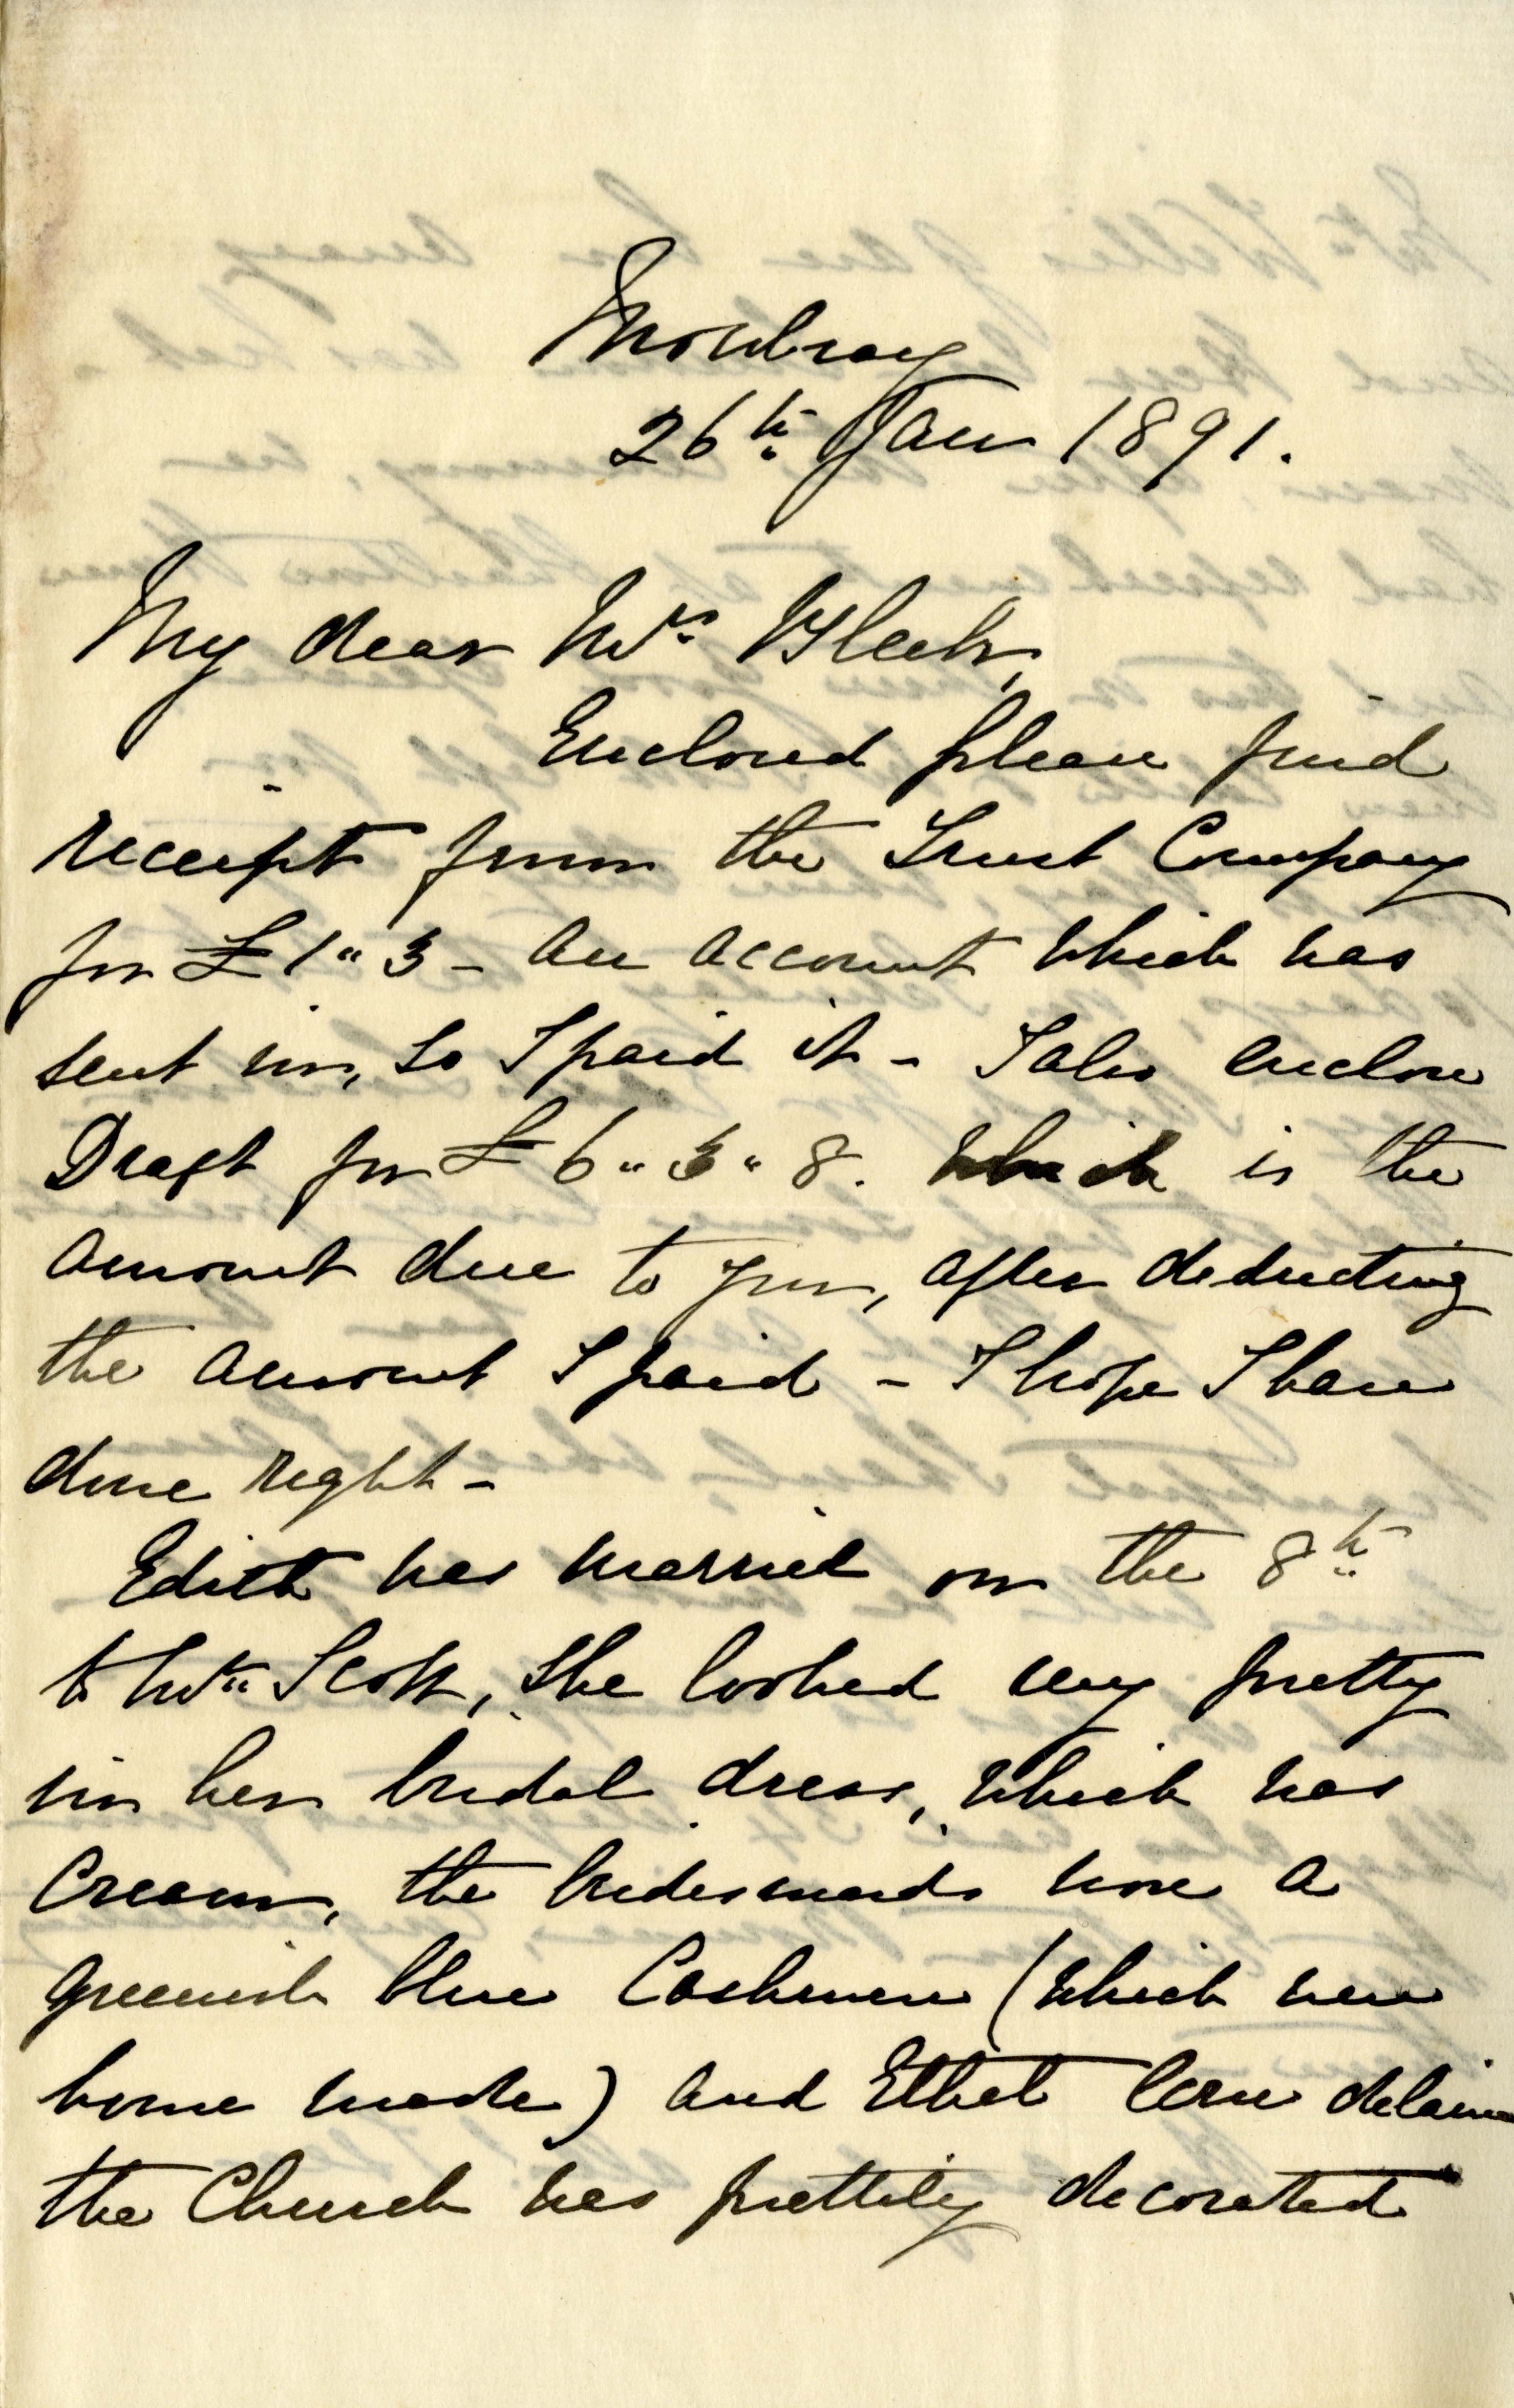 Mowbray
26th Jan 1891.
My dear Mrs Bleek,
Enclosed please find
receipt from the Trust Company
for £1"3 - an account which was
sent in, so I paid it - I also enclose
Draft for £6"3"8. which is the
amount due to you, after deducting
the amount I paid - I hope I have
done right -
Edith was married on the 8th
to Mr Scott, she looked very pretty
in her bridal dress, which was
Cream, the bridesmaids wore a
greenish blue Cashmere (which were
home made) and Ethel delaine
the Church was prettily decorated